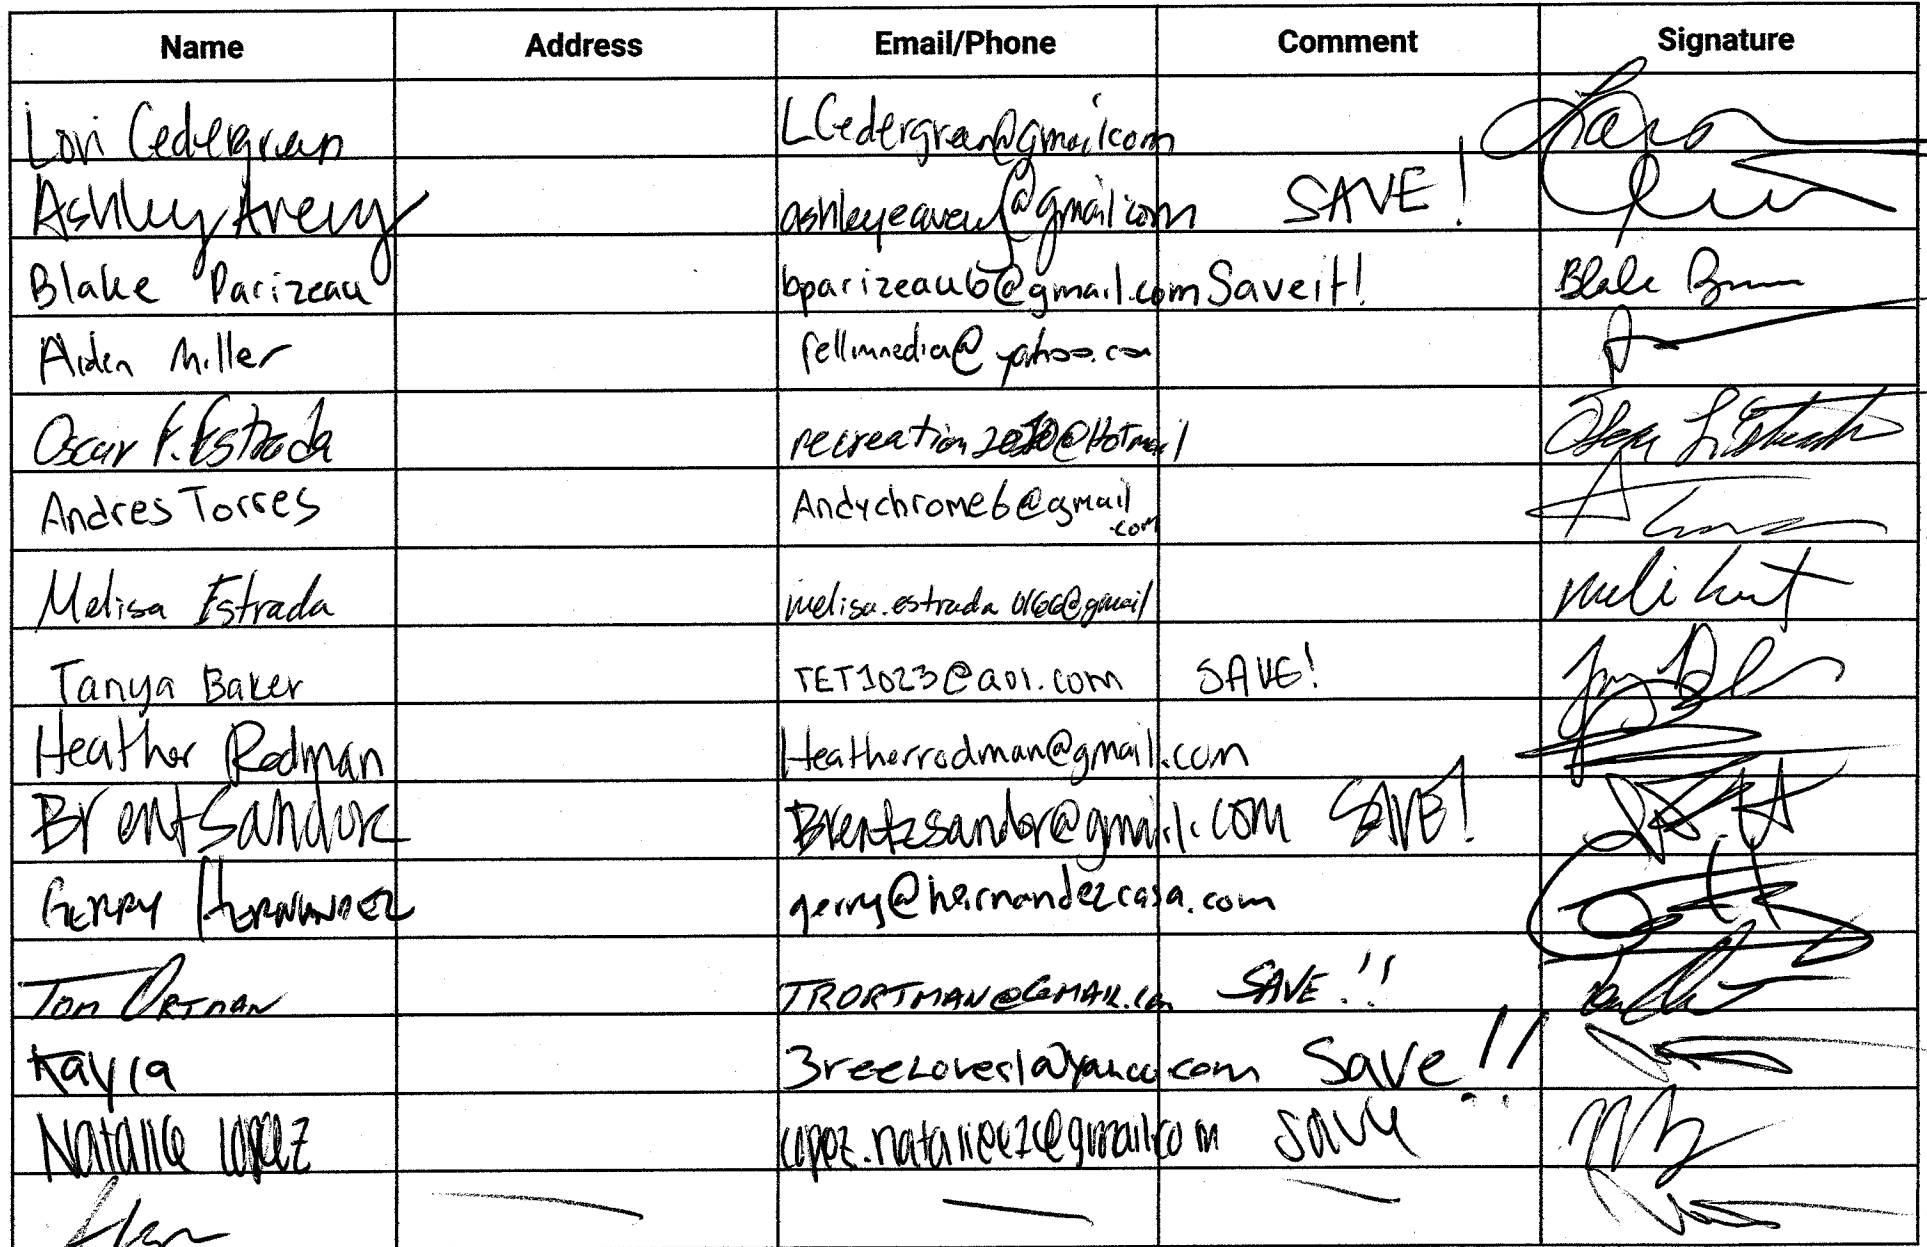 Name Address Email/Phone Comment Signature
Lori Cedergren LCedergren@gmail.com
Ashley Avery ashleyeavery@gmail.com SAVE!
Blake Parizeau bparizeau6@gmail.com Save it!
Aiden Miller fellinmedia@yahoo.com
Oscar F. Estrada @Hotmail
Andres Torres Andychrome6@gmail
.com
Melisa Estrada melisa.estrada @gmail
Tanya Baker TET1023@aol.com SAVE!
Heather Rodman Heatherrodman@gmail.com
Brent Sandor Brentzsandor@gmail.com SAVE!
GERRY HERNANDEZ gerry@hernandezcasa.com
TOM ORTMAN TRORTMAN@GMAIL.com SAVE!!
Kayla 3reeLoves1@yahoo.com Save!!
Natalie Lopez save